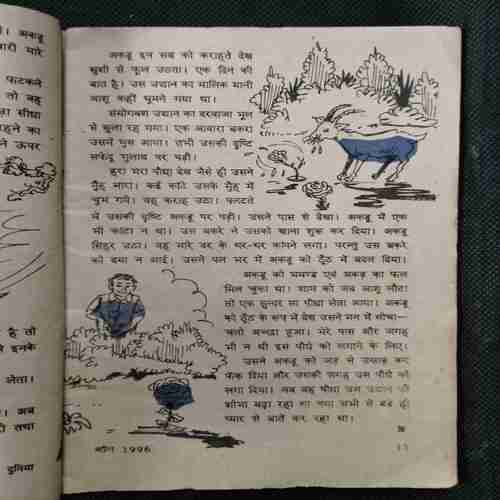 । अकडू
पारी मारे
फाटकने
तो वह
सीधा
रहने का
ने ऊपर
है तो
से इनके
लेता।
। अब
ही तथा
दुनिया
अकडू इन सब को कराहते देख
खुशी से फूल उठता। एक दिन की
बात है। उस उद्यान का मालिक यानी
आशु कहीं घूमने गया था।
संयोगवश उद्यान का दरवाजा भूल
से खुला रह गया। एक आवारा बकरा
उसमें घुस आया। तभी उसकी दृष्टि
सफेदू गुलाब पर पड़ी।
हरा भरा पौधा देख जैसे ही उसने
मुँह मारा। कई कांटे उसके मुँह में
चुभ गये। वह कराह उठा। पलटते
में उसकी दृष्टि अकडू पर पड़ी। उसने पास से देखा। अकडू में एक
भी कांटा न था। उस बकरे ने उसको खाना शुरू कर दिया। अकडू
सिहर उठा। वह मारे डर के थर-थर कांपने लगा। परन्तु उस बकरे
को दया न आई। उसने पल भर में अकडू को ठूँठ में बदल दिया।
अकडू को घमण्ड एवं अकड़ का फल
मिल चुका था। शाम को जब आशु लौटा
तो एक सुन्दर सा पौधा लेता आया। अकडू
को ठूँठ के रूप में देख उसने मन में सोचा-
चलो अच्छा हुआ। मेरे पास और जगह
भी न थी इस पौधे को लगाने के लिए।
उसने अकडू को जड़ से उखाड़ कर
फेंक दिया और उसकी जगह उस पौधे को
लगा दिया। अब वह पौधा उस उद्यान की
शोभा बढ़ा रहा था तथा सभी से बड़े ही
प्यार से बातें कर रहा था।
1996